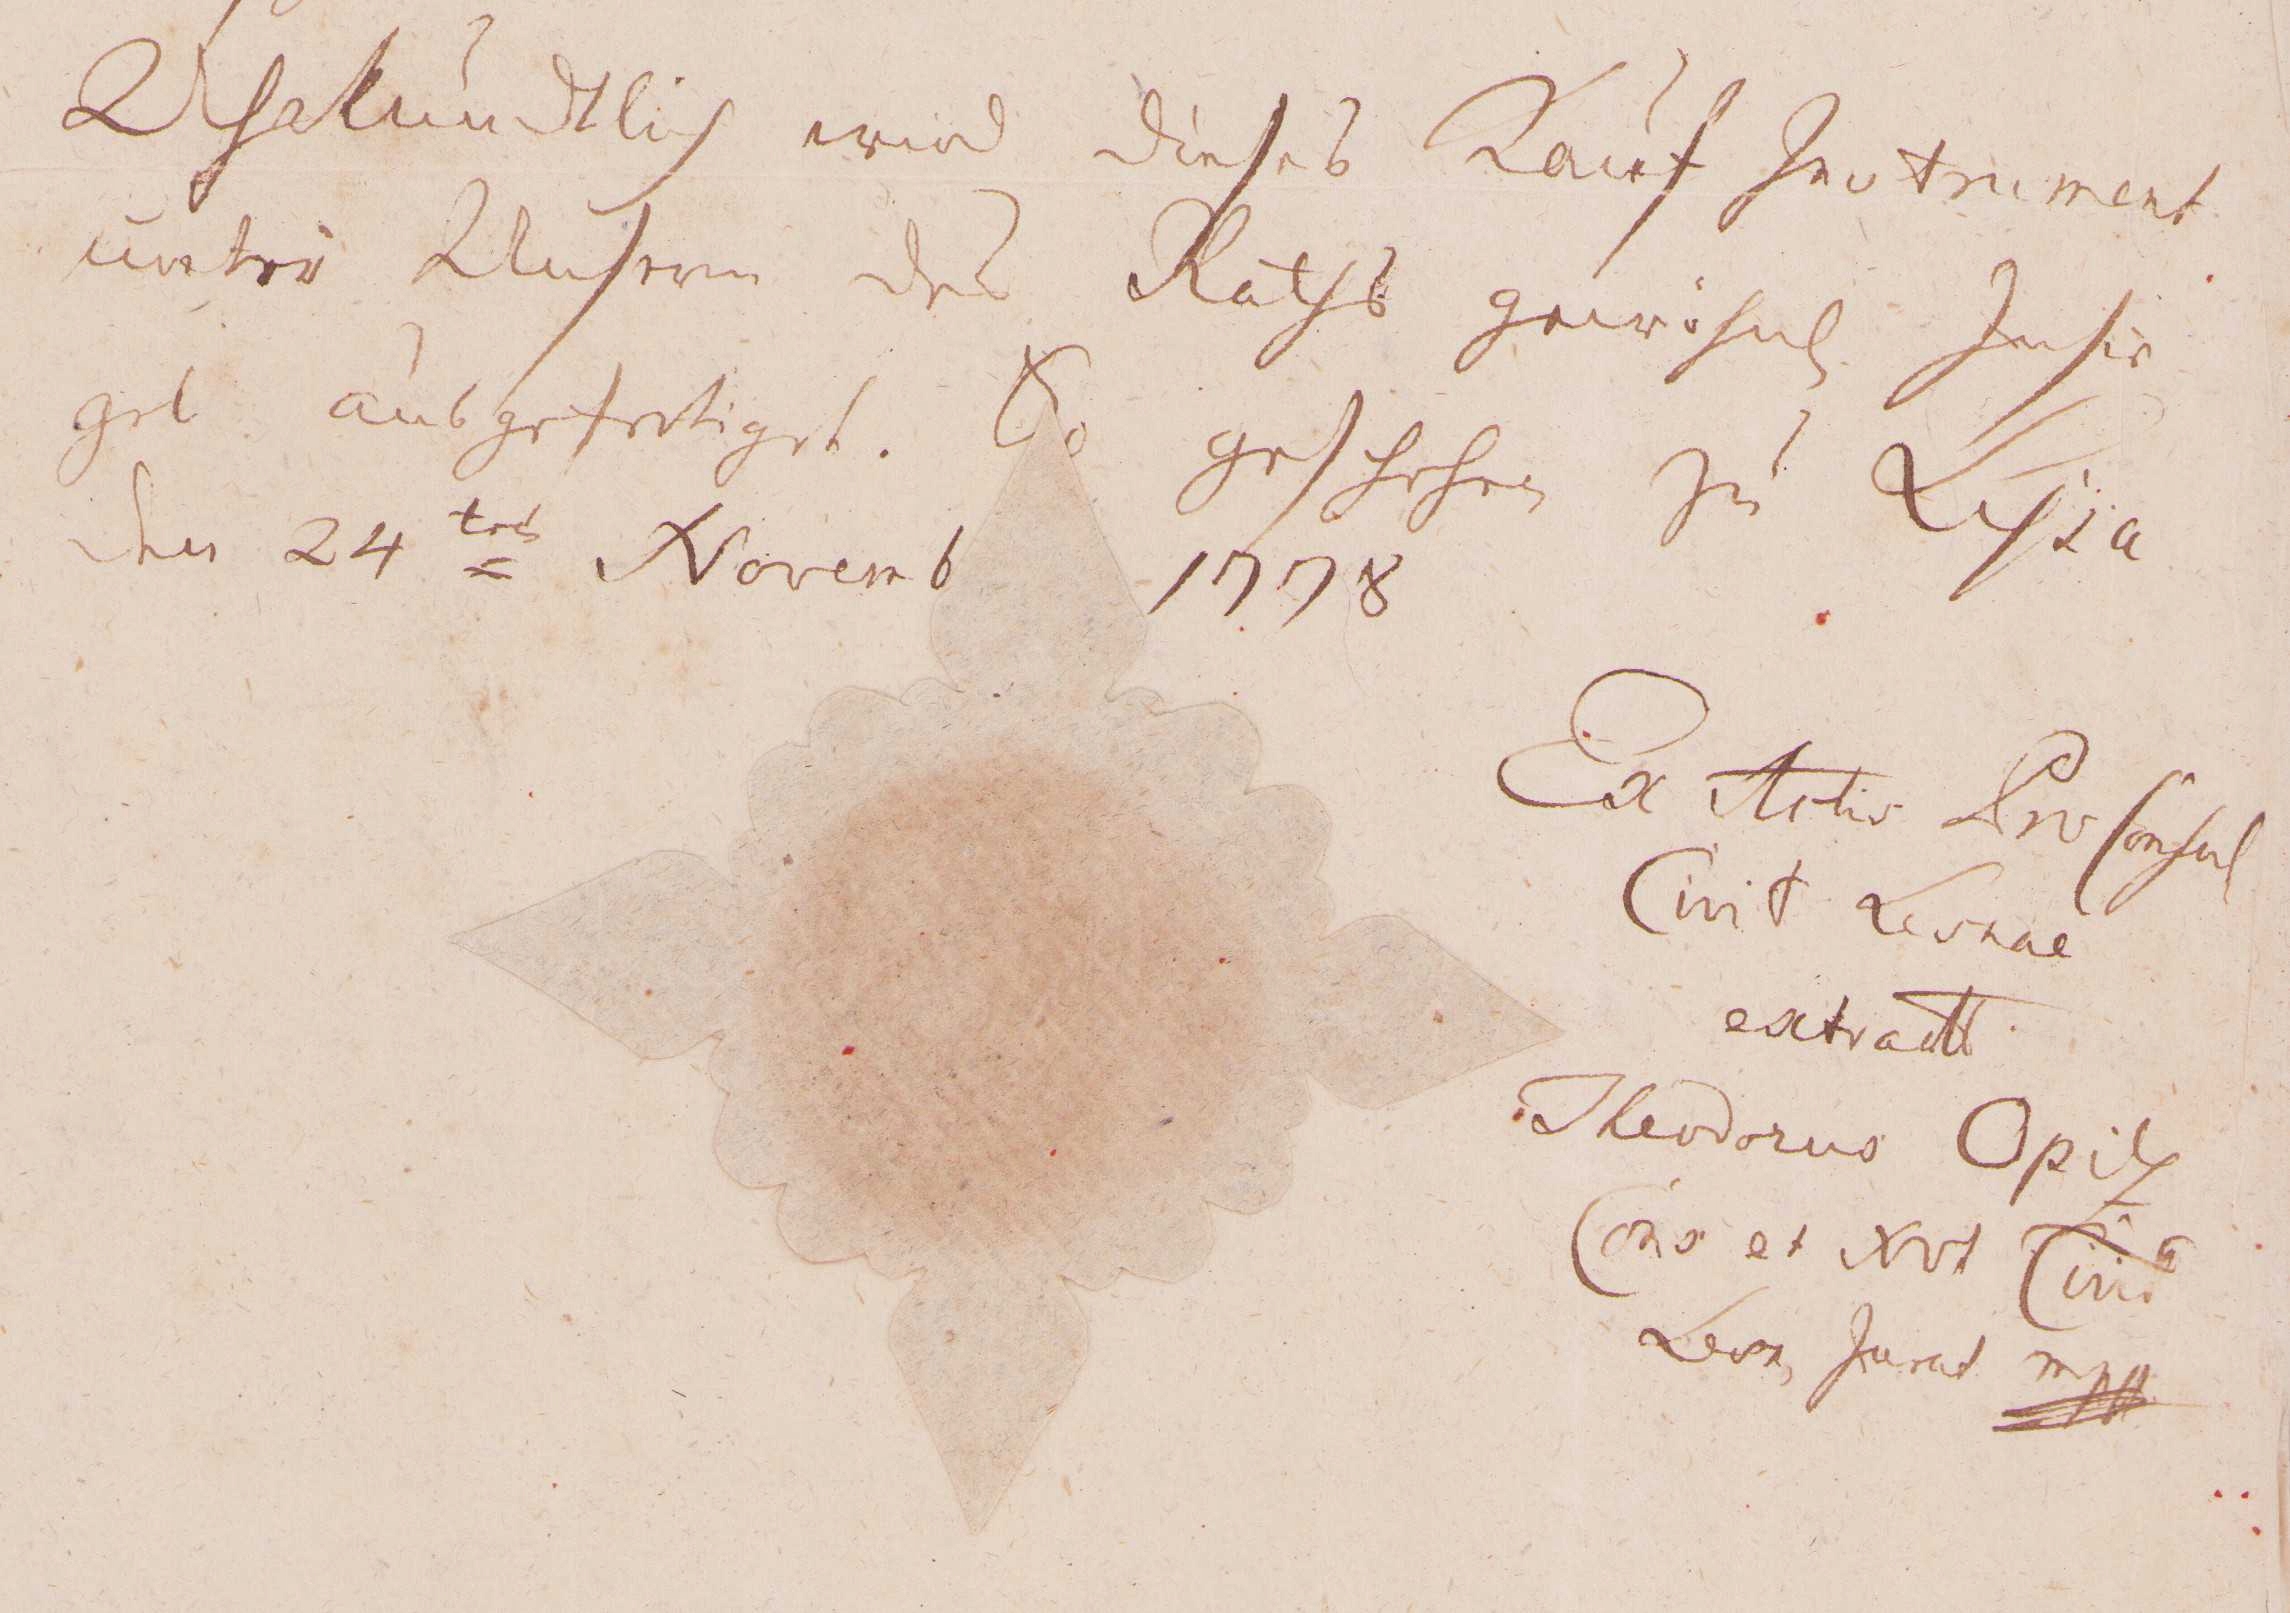 Uhrkundtlich wird dieses Kauf Instrument
unter Unserm des Raths gewöhnl. Insie
gel ausgefertiget. So geschehen zu Lissa
den 24 ten Novemb 1778
Ex Actis Pro Consul
Civit Lesnae
extractt
Theodorus Opitz
Cons et Not Civit
Lesn, Jurat mpp